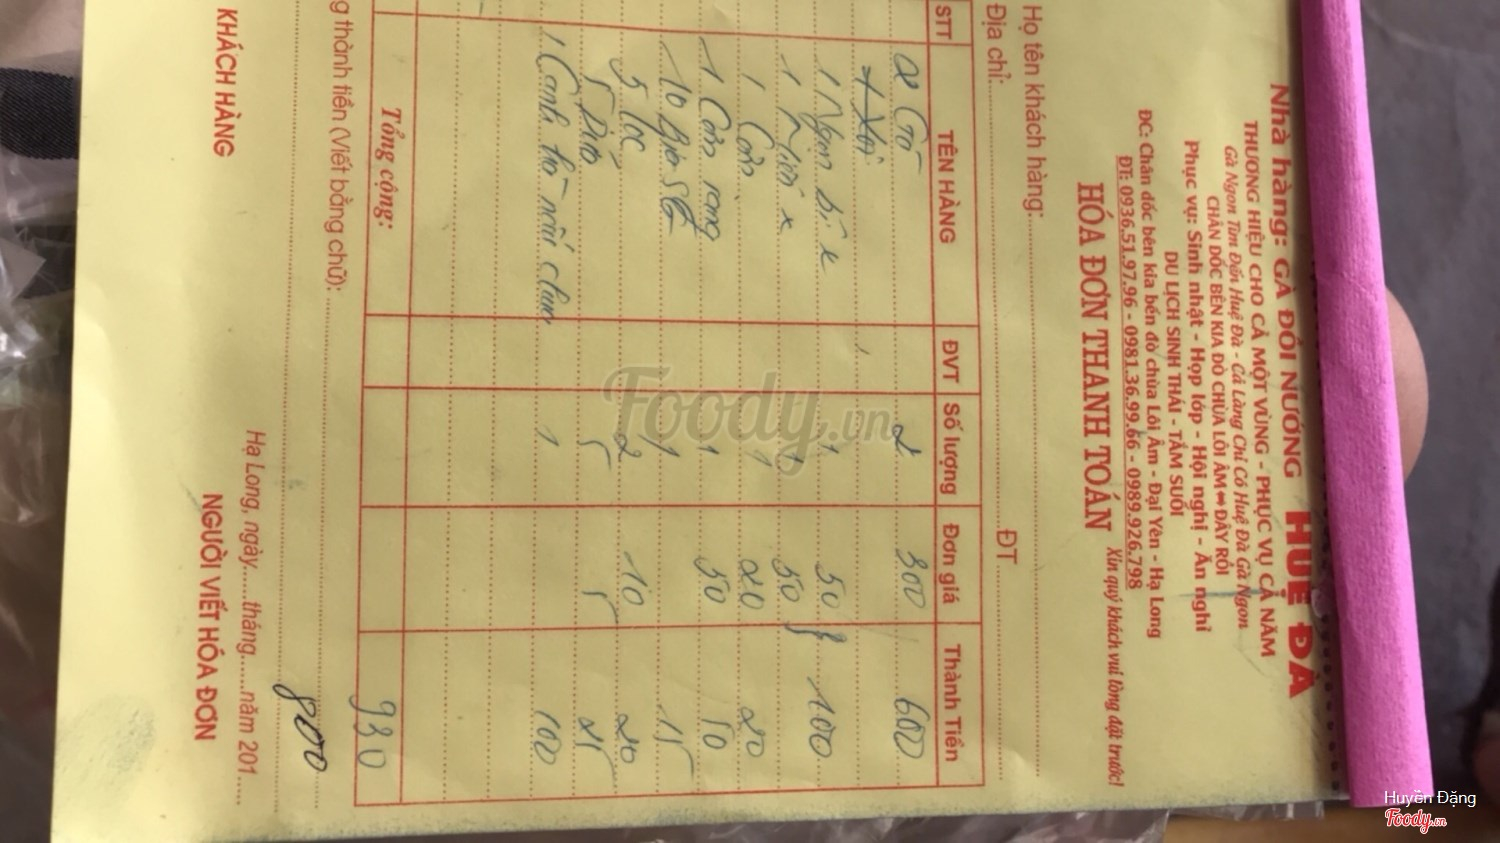 Nhà hàng: GÀ ĐỒI NƯỚNG HUỆ ĐÀ
THƯƠNG HIỆU CHO CẢ MỘT VÙNG - PHỤC VỤ CẢ NĂM
Gà Ngon Tìm Đến Huệ Đà - Cả Làng Chỉ Có Huệ Đà Gà Ngon
CHÂN DỐC BÊN KIA ĐÒ CHÙA LÔI ÂM ⇔ ĐÂY RỒI
Phục vụ: Sinh nhật - Họp lớp - Hội nghị - Ăn nghỉ
DU LỊCH SINH THÁI - TẮM SUỐI
ĐC: Chân dốc bên kia bến đò chùa Lôi Âm - Đại Yên - Hạ Long
ĐT: 0936.51.97.96 - 0981.36.99.66 - 0989.926.798
HÓA ĐƠN THANH TOÁN Xin quý khách vui lòng đặt trước!
Họ tên khách hàng:
Địa chỉ: ĐT
STT TÊN HÀNG ĐVT Số lượng Đơn giá Thành Tiền
2 Gà 2 300 600
1 Ngọn bí x 1 50
1 x 1 50 100
1 Cơm 1 20 20
1 Cơm rang 1 50 50
10 1 15
5 lọc 2 10 20
5 5 5 25
1 Canh 1 100
Tổng cộng: 930
g thành tiền (Viết bằng chữ): 800
Hạ Long, ngày......tháng......năm 201....
KHÁCH HÀNG NGƯỜI VIẾT HÓA ĐƠN
Foody.vn
Huyền Đặng
Foody.vn